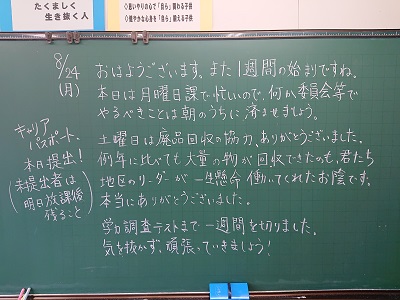 たくましく
生き抜く人
◇思いやりの心で「自ら」関わる子供
◇健やかな心身を「自ら」鍛える子供
8/24
(月)
おはようございます。また1週間の始まりですね。
本日は月曜日課で忙しいので、何か委員会等で
やるべきことは朝のうちに済ませましょう。
土曜日は廃品回収の協力、ありがとうございました。
例年に比べても大量の物が回収できたのも、君たち
地区のリーダーが一生懸命働いてくれたお陰です。
本当にありがとうございました。
学力調査テストまで一週間を切りました。
気を抜かず、頑張っていきましょう!
キャリア
パスポート、
本日提出!
(未提出者は
明日放課後
残ること)